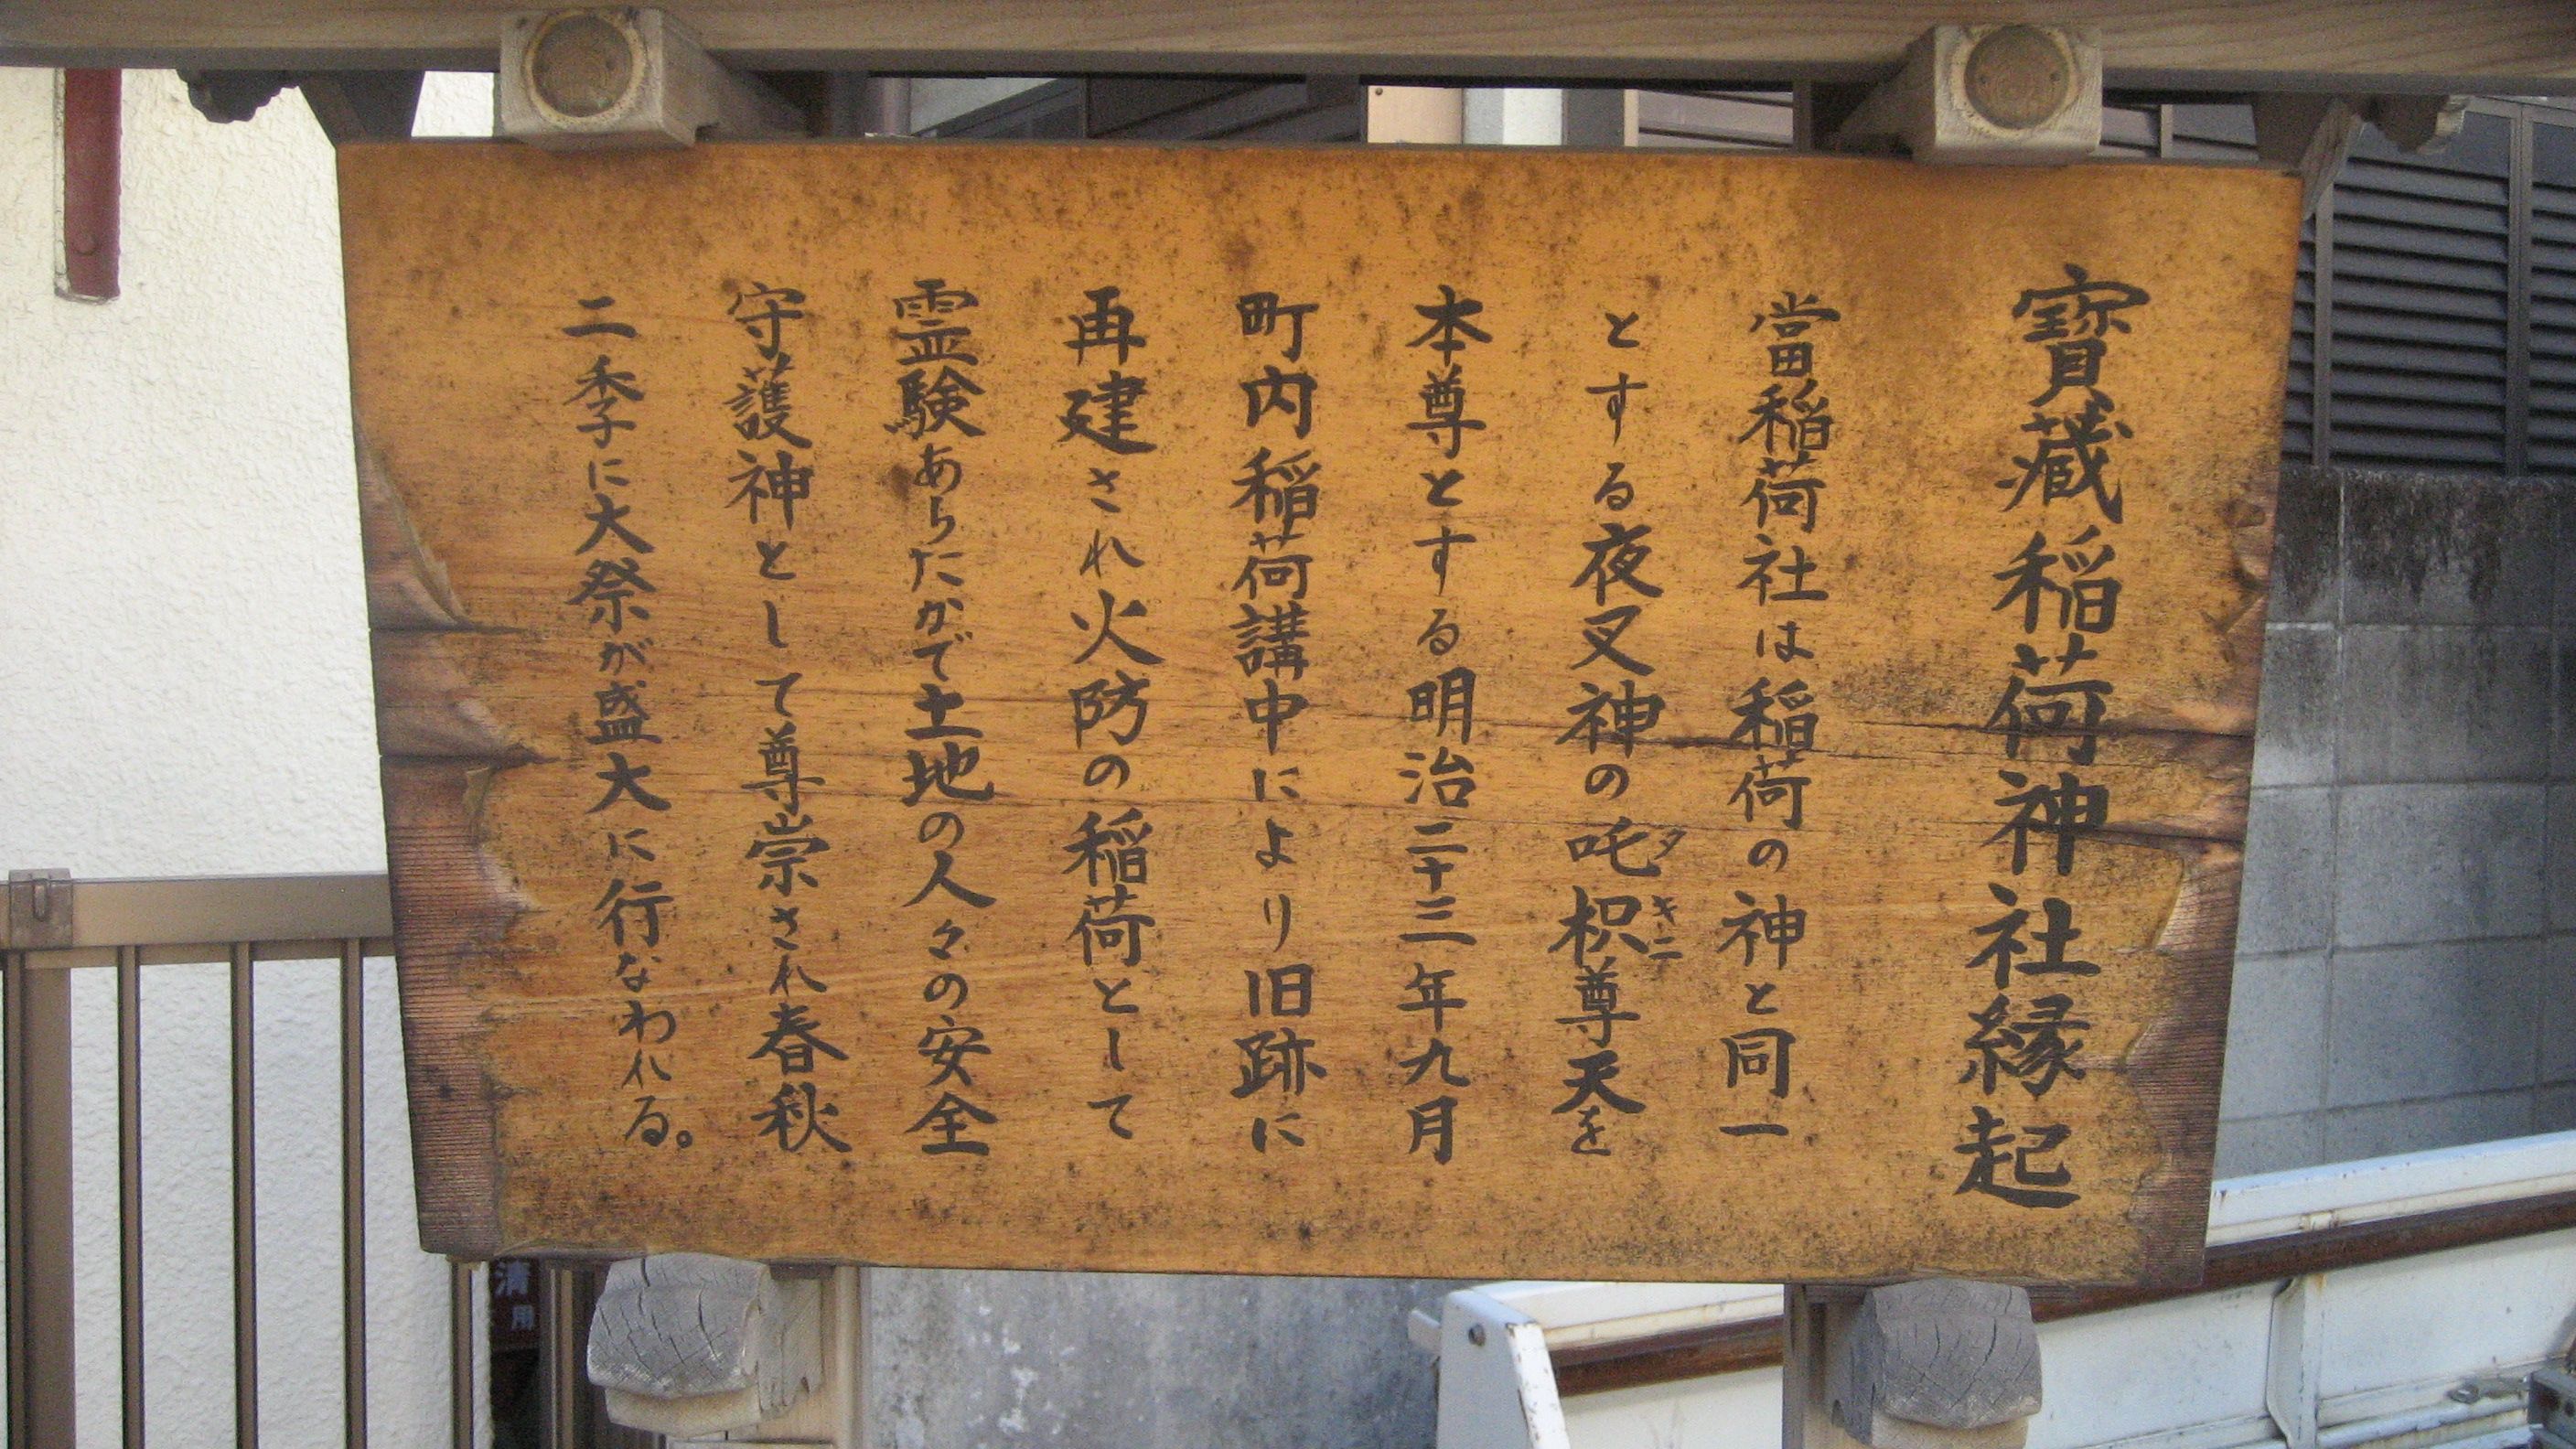 寶蔵稲荷神社縁起
當稲荷社は稲荷の神と同一
とする夜叉神の吒枳尊天を
タキニ
本尊とする明治二十三年九月
町内稲荷講中により旧跡に
再建され火防の稲荷として
霊験あらたかで土地の人々の安全
守護神として尊崇され春秋
二季に大祭が盛大に行なわれる。
用